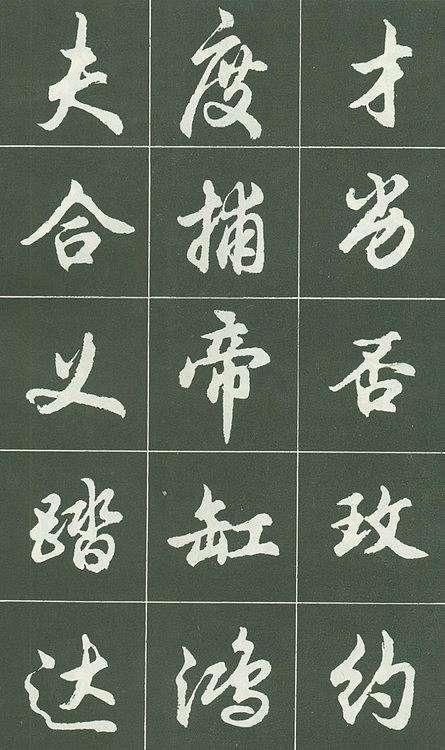 才劳否玫约
度捕帝缸鸿
夫合义踏达